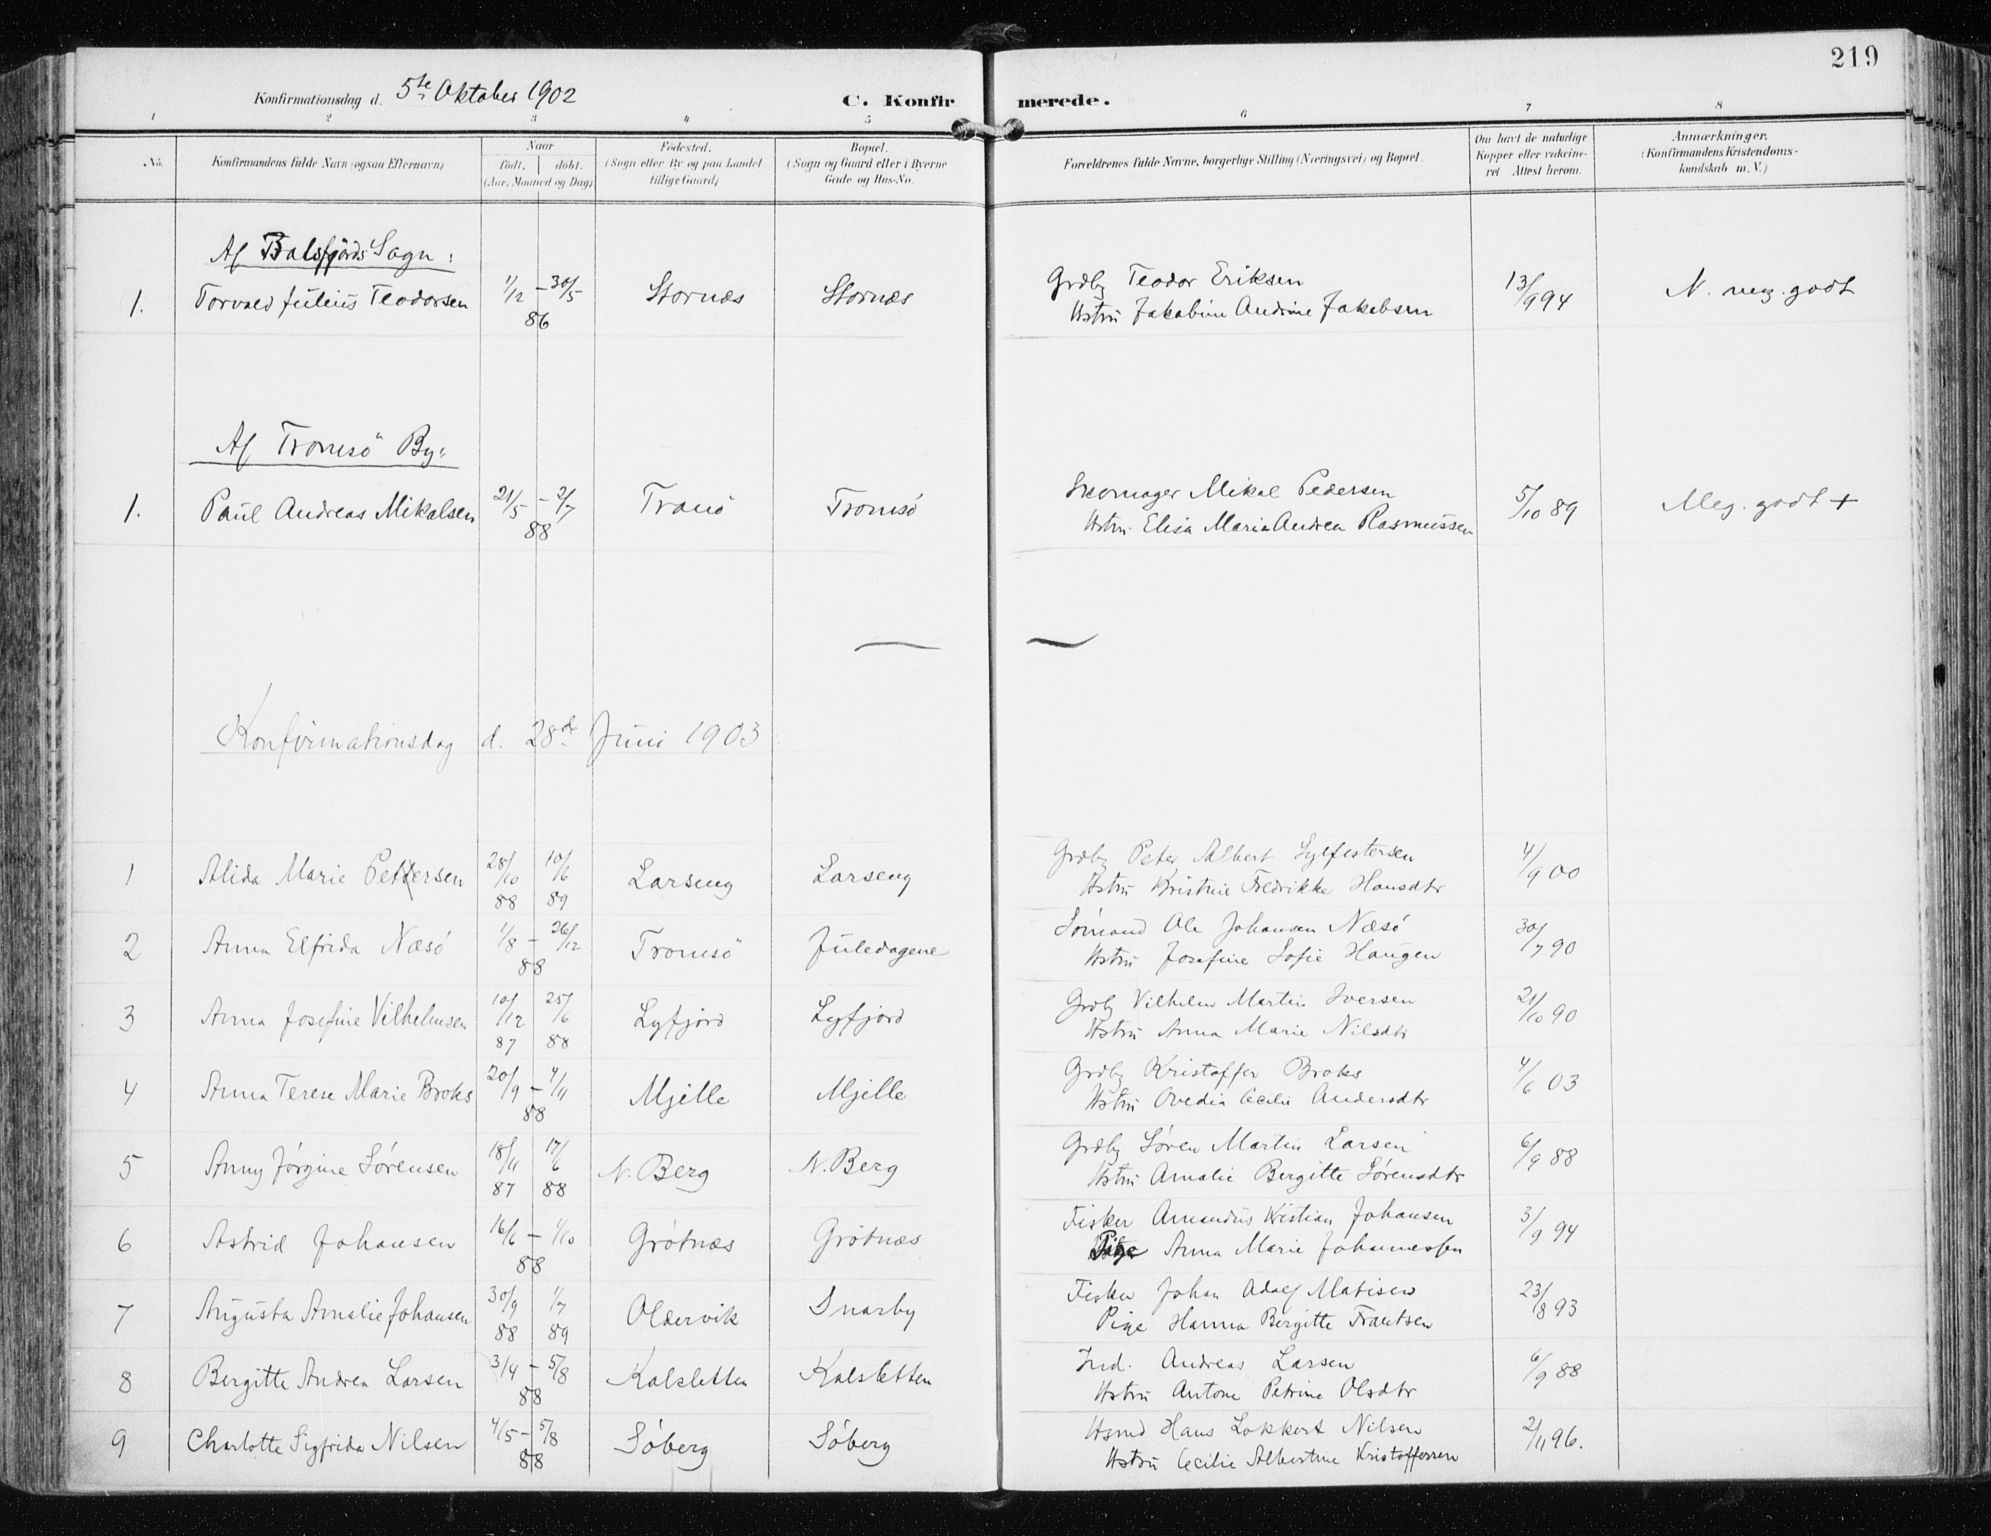 219
Konfirmationsdag d. 5te Oktober 1902 C. Konfirmerede.
1 2 3 4 5 6 7 8
No. Konfirmandens fulde Navn (ogsaa Efternavn) Naar født. døbt. (Aar, Maaned og Dag) Fødested. (Sogn eller By og paa Landet tillige Gaard) Bopæl. (Sogn og Gaard eller i Byerne Gade og Hus-No. Forældrenes fulde Navne, borgerlige Stilling (Næringsvei) og Bopæl. Om havt de naturlige Kopper eller vakcineret Attest herom. Anmærkninger. (Konfirmandens Kristendomskundskab m. V.)
Af Balsfjords Sogn:
1. Torvald Julius Teodorsen 1/12 - 30/5 86 Stornæs Stornæs Grdby Teodor Eriksen 13/9 94 N. meg. godt
Hstru Jakobine Andrine Jakobsen
Af Tromsö By:
1. Paul Andreas Mikalsen 21/5 - 2/7 88 Tranö Tromsö Skomager Mikal Pedersen 5/10 89 Meg. godt +
Hstru Elisa Maria Andrea Rasmussen
Konfirmationsdag d. 28de Juni 1903
1 Alida Marie Pettersen 28/10 88 10/6 89 Larseng Larseng Grdby Peter Albert Sylfestersen 4/9 00
Hstru Kristine Fredrikke Hansdtr
2 Anna Elfrida Næsö 1/8 - 26/12 88 Tromsö Juledagene Sømand Ole Johansen Næsö 30/7 90
Hstru Josefine Sofie Haugen
3 Anna Josefine Vilhelmsen 10/12 87 25/6 88 Lyfjord Lyfjord Grdby Vilhelm Martin Iversen 21/10 90
Hstru Anna Marie Nilsdtr
4 Anna Terese Marie Broks 20/9 - 4/11 88 Mjelle Mjelle Grdby Kristoffer Broks 4/6 03
Hstru Ovedia Cecilie Andersdtr
5 Anny Jörgine Sörensen 18/11 87 17/6 88 N. Berg N. Berg Grdby Sören Martin Larsen 6/9 88
Hstru Amalie Bergitte Sörensdtr
6 Astrid Johansen 16/6 - 1/10 88 Grötnæs Grötnæs Fisker Amandus Kristian Johansen 3/9 94
Pige Anna Marie Johannessen
7 Augusta Amalie Johansen 30/9 88 1/7 89 Oldervik Snarby Fisker Johan Adolf Matisen 23/8 93
Pige Hanna Bergitte Frantsen
8 Bergitte Andrea Larsen 3/4 - 5/8 88 Kalsletten Kalsletten Ind. Andreas Larsen 6/9 88
Hstru Antone Petrine Olsdtr
9 Charlotte Sigfrida Nilsen 4/5 - 5/8 88 Söberg Söberg Hsmd Hans Lokkert Nilsen 2/11 96.
Hstru Cecilie Albertine Kristoffersen